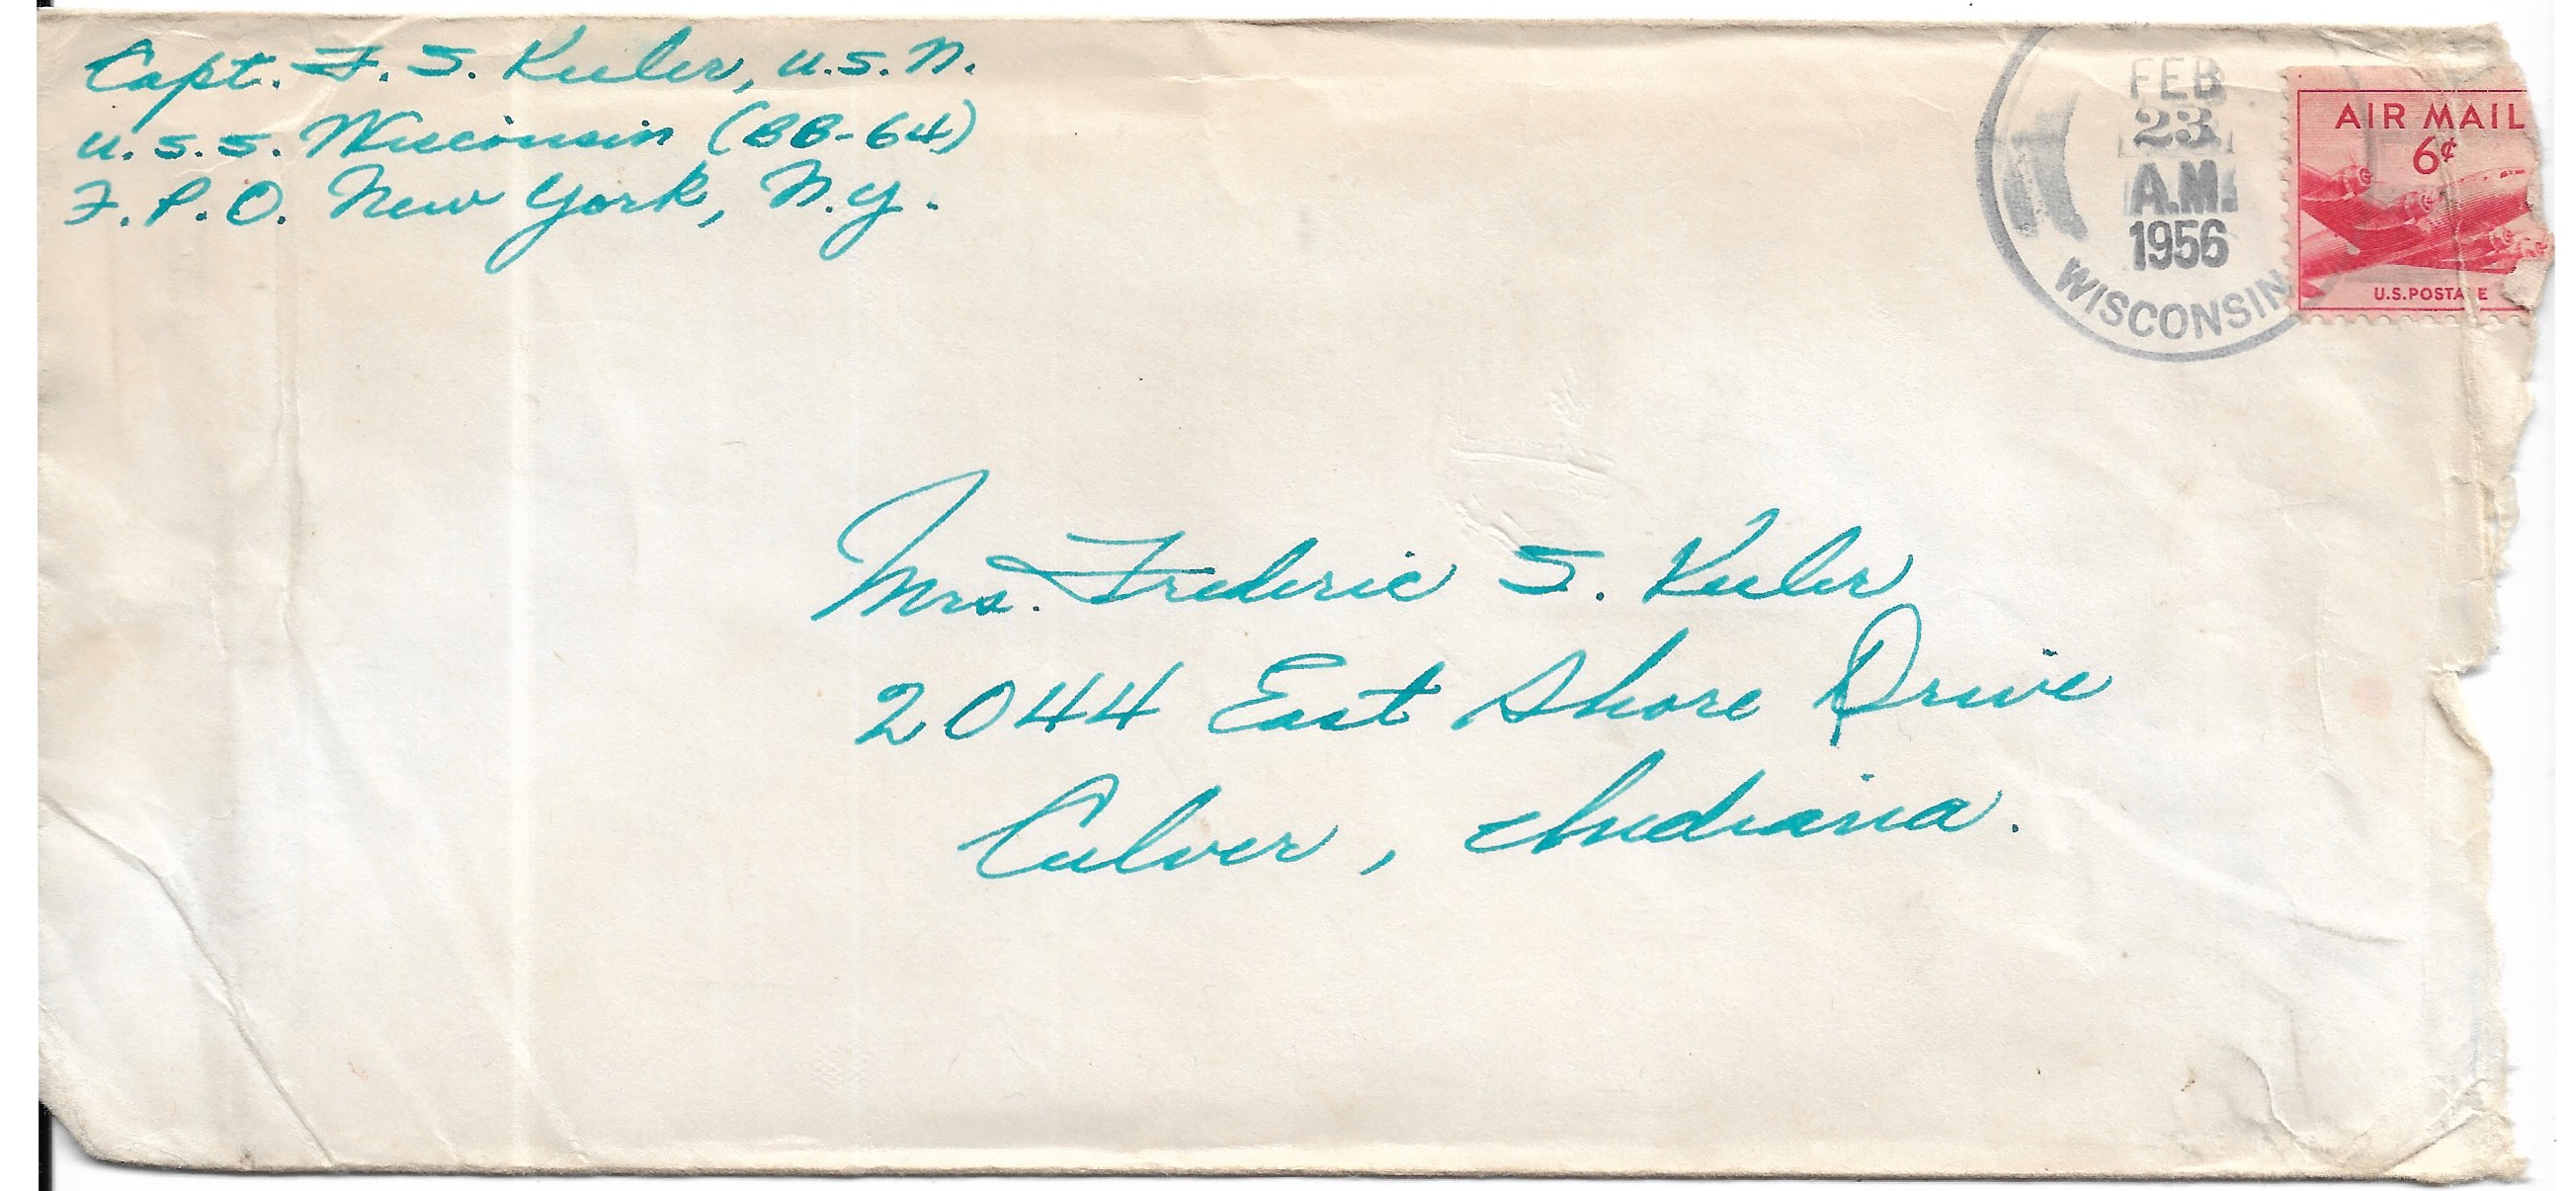 Capt. F. S. Keeler, U.S.N.
U.S.S. Wisconsin (BB-64)
F.P.O. New York, N.Y.
FEB
23
A.M.
1956
WISCONSIN
AIR MAIL
6¢
U.S.POSTA E
Mrs. Frederic S. Keeler
2044 East Shore Drive
Culver, Indiana.